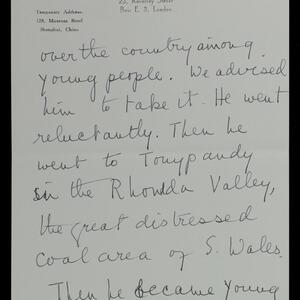 Temporary Address:
128, Museum Road
Shanghai, China
Bow E. 3, London
over the country among
young people. We advised
him to take it. He went
reluctantly. Then he
went to Tonypandy
in the Rhondda Valley,
the great distressed
coal area of S. Wales.
Then he became Young